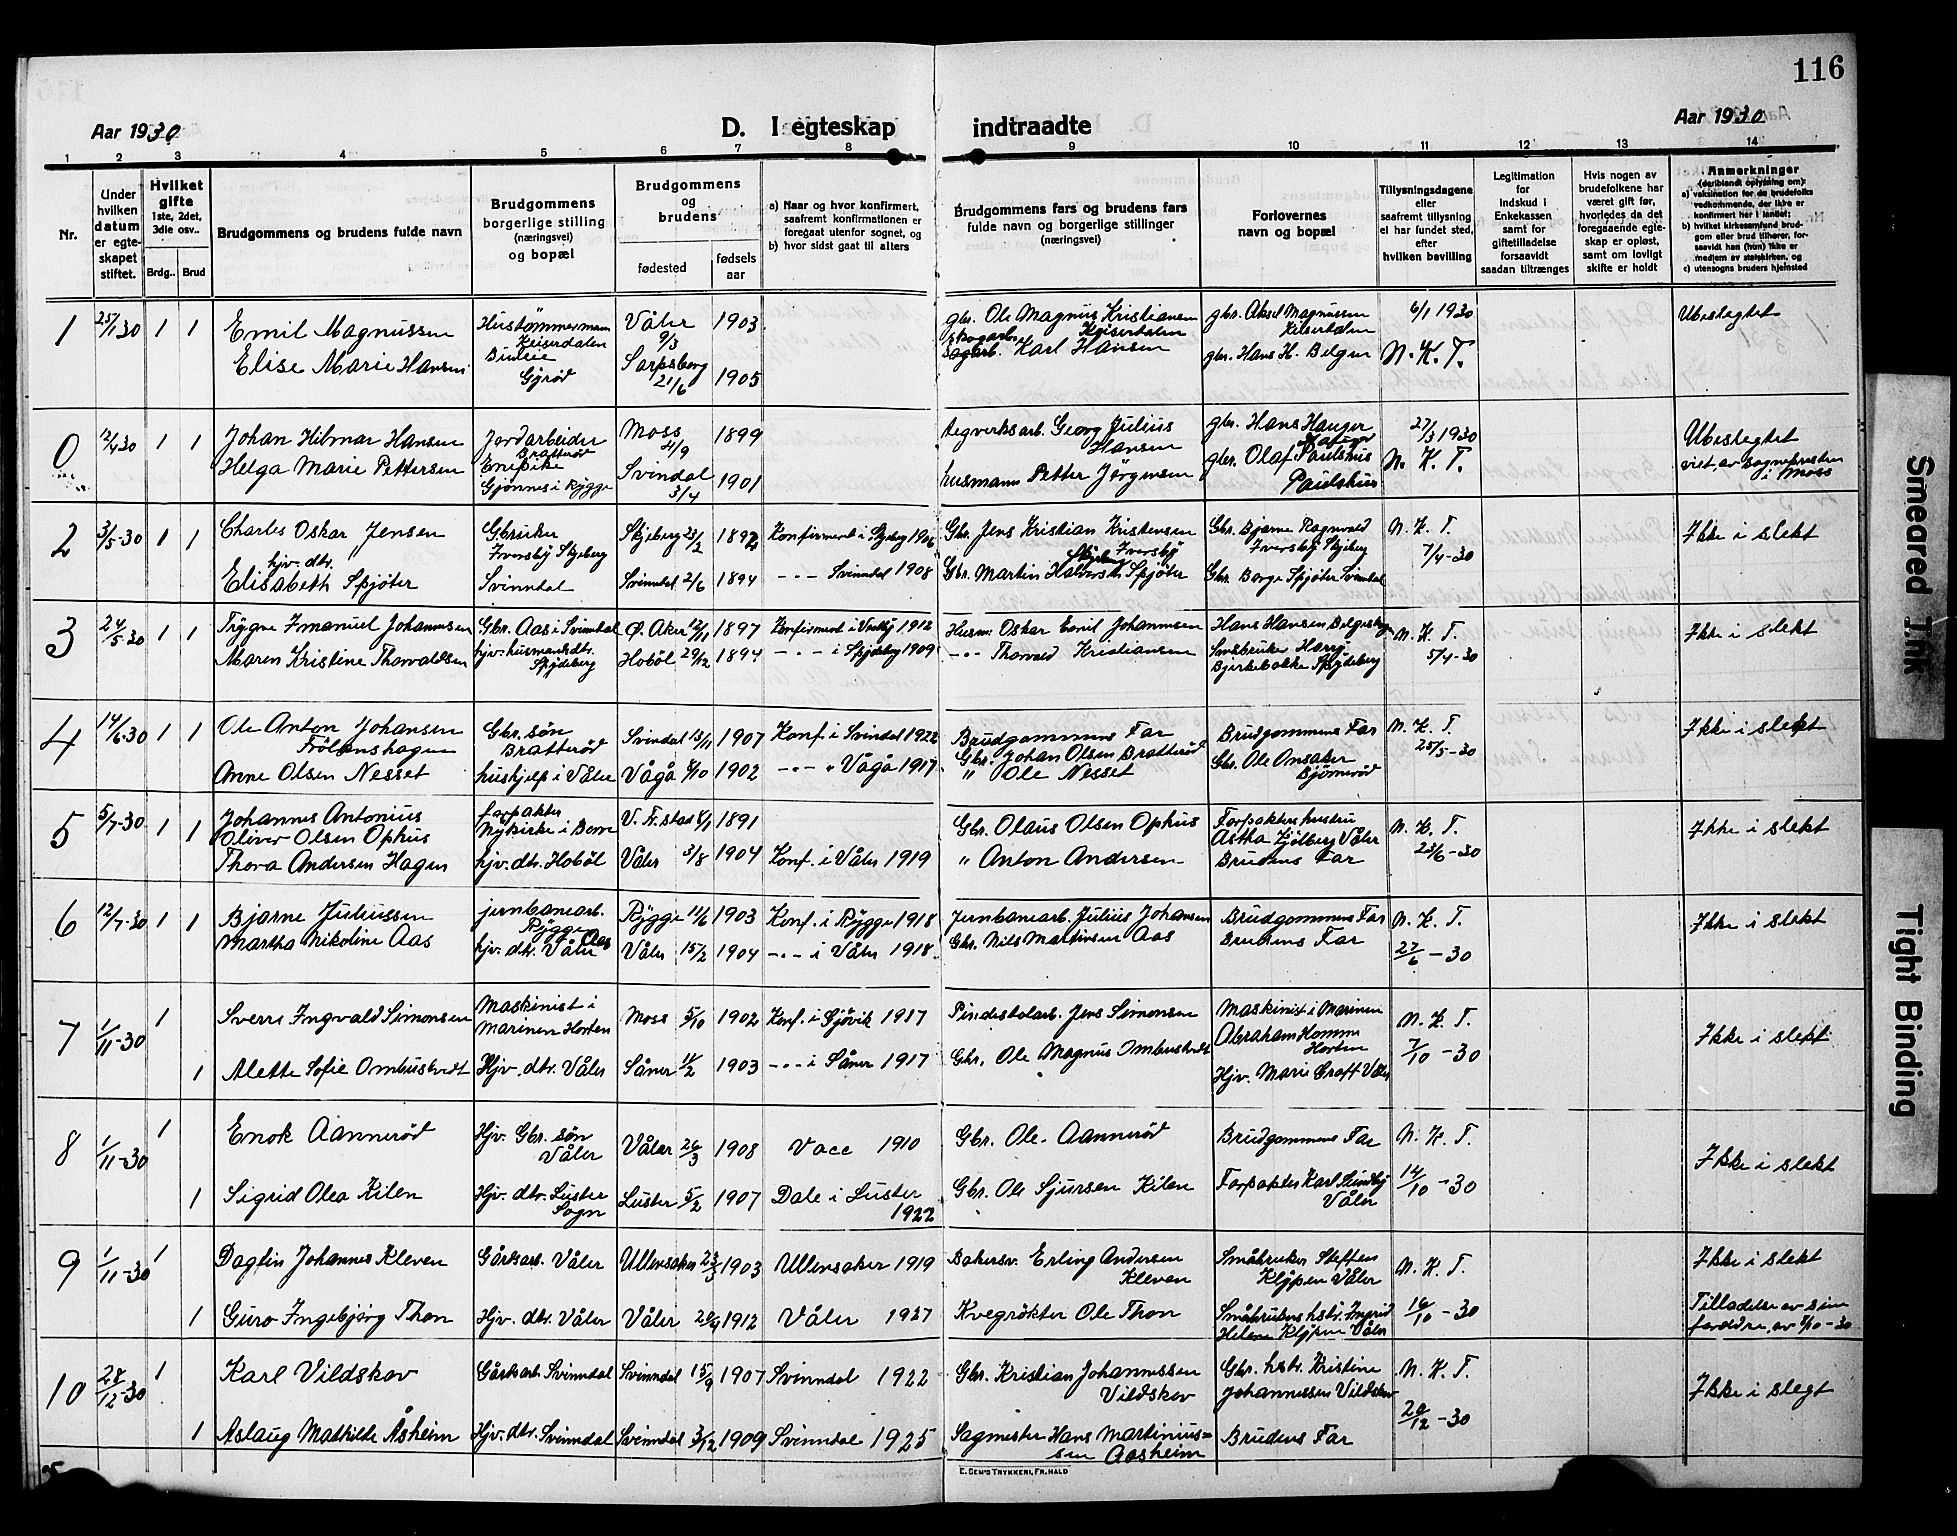 116
Aar 1930
D. I egteskap indtraadte
Aar 1930
1 2 3 4 5 6 7 8 9 10 11 12 13 14
Nr.
Under hvilken datum er egteskapet stiftet.
Hvilket gifte 1ste, 2det, 3die osv..
Brdg.. Brud
Brudgommens og brudens fulde navn
Brudgommens borgerlige stilling (næringsvei) og bopæl
Brudgommens og brudens
fødested
fødsels aar
a) Naar og hvor konfirmert, saafremt konfirmationen er foregaat utenfor sognet, og
b) hvor sidst gaat til alters
Brudgommens fars og brudens fars fulde navn og borgerlige stillinger (næringsvei)
Forlovernes navn og bopæl
Tillysningsdagene eller saafremt tillysning ei har fundet sted, efter hvilken bevilling
Legitimation for indskud i Enkekassen samt for giftetilladelse forsaavidt saadan tiltrænges
Hvis nogen av brudefolkene har været gift før, hvorledes da det foregaaende egteskap er opløst, samt om lovligt skifte er holdt
Anmerkninger
(deriblandt oplysning om):
a) vaksination for de brudefolks vedkommende, der ikke er konfirmert her i landet;
b) hvilket kirkesamfund brudgom eller brud tilhører, forsaavidt han (hun) ikke er medlem av statskirken, og
c) utensogns bruders hjemsted
1 25/1 30 1 1 Emil Magnussen Hustømmermann Keiserdalen Våler 9/3 1903 gbr. Ole Magnus Kristiansen Keiserdalen gbr. Aksel Magnussen Keiserdalen 6/1 1930 Ubeslegtet
Elise Marie Hansen Gyrød Sarpsborg 21/6 1905 Karl Hansen gbr. Hans H. Belgen N. K. T.
0 12/4 30 1 1 Johan Hilmar Hansen Jordarbeider Bratterød Moss 4/9 1899 tegverksarb. Georg Julius Hansen gbr. Hans Hauger 27/3 1930 Ubeslegtet
Helga Marie Pettersen Enepike Gjønnes i Rygge Svindal 3/4 1901 husmann Petter Jørgensen gbr. Olaf Paulshus Paulshus N. K. T. viet av sognepresten i Moss
2 3/5-30 1 1 Charles Oskar Jensen Gbruker Iversby Skjeberg Skjeberg 23/2 1892 Konfirmert i Skjeberg 1906 Gbr. Jens Kristian Kristensen Iversby Skjeberg Gbr. Bjarne Ragnvald Iversby Skjeberg N. K. T. 7/4-30 Ikke i slekt
hjv. dtr. Elisabeth Spjøter Svinndal Svinndal 2/6 1894 - - - Svinndal 1908 Gbr. Martin Halvorsen Spjøter Gbr. Borge Spjøter Svinndal
3 24/5-30 1 1 Trygve Imanuel Johannesen Gbr. Aas i Svinndal Ø. Aker 12/11 1897 Konfirmert i Vestby 1912 Husm. Oskar Emil Johannesen Hans Hansen Belgesby N. K. T. 5/4-30 Ikke i slekt
Maren Kristine Thorvaldsen hjv. husmandsdtr. Spydeberg Hobøl 29/12 1894 - - - i Spydeberg 1909 - - - Thorvald Kristiansen Småbruker Harry Bjerkebakke Spydeberg
4 14/6-30 1 1 Ole Anton Johansen Frölandshagen Gbr. søn Bratterød Svindal 13/11 1907 Konf. i Svindal 1922 Brudgommens Far Gbr. Johan Olsen Bratterød Brudgommens Far N. K. T. 25/5-30 Ikke i slekt
Anne Olsen Nesset hushjelp i Våler Vågå 9/10 1902 - - - " Vågå 1917 " Ole Nesset Gbr. Ole Ansaker Bjørnerød
5 5/7-30 1 1 Johannes Antonius Oliver Olsen Ophus forpakter Nykirke i Borre V. Fr.stad 8/1 1891 Gbr. Olaus Olsen Ophus Forpakters hustru Astha Kjølberg Våler N. K. T. 23/6-30 Ikke i slekt
Thora Andersen Hagen hjv. dtr. Hobøl Våler 3/8 1904 Konf. i Våler 1919 " Anton Andersen Brudens Far
6 12/7-30 1 1 Bjarne Juliussen jernbanearb. Rygge Rygge 11/6 1903 Konf. i Rygge 1918 Jernbanearb. Julius Johansen Brudgommens Far N. K. T. 27/6-30 Ikke i slekt
Martha Nikoline Aas hjv. dtr. Våler Aas Våler 15/2 1904 - - - i Våler 1918 Gbr. Nils Martinsen Aas Brudens Far
7 1/11-30 1 Sverre Ingvald Simonsen Maskinist i Marinen Horten Moss 5/10 1902 Konf. i Gjøvik 1917 Pindestolarb. Jens Simonsen Maskinist i Marinen Abraham Homme Horten N. K. T. 7/10-30 Ikke i slekt
1 Alette Sofie Ombustvedt Hjv. dtr. Våler Såner 14/2 1903 - - - i Såner 1917 Gbr. Ole Magnus Ombustvedt Hjv. Marie Graff Våler
8 1/11-30 1 Enok Aannerød Hjv. Gbr. søn Våler Våler 26/3 1908 Vacc 1910 Gbr. Ole Aannerød Brudgommens Far N. K. T. 14/10-30 Ikke i slekt
1 Sigrid Olea Kilen Hjv. dtr. Luster Sogn Luster 5/2 1907 Dale i Luster 1922 Gbr. Ole Sjursen Kilen Forpakter Karl Lundby Våler
9 1/11-30 1 Dagfin Johannes Kleven Gårdsarb. Våler Ullensaker 23/3 1903 Ullensaker 1919 Bakersv. Erling Andersen Kleven Småbruker Steffen Klypen Våler N. K. T. 16/10-30 Ikke i slekt
1 Guro Ingebjørg Thon Hjv. dtr. Våler Våler 20/9 1912 Våler 1927 Kvegrøkter Ole Thon Småbrukers hstr. Ingrid Helene Klypen Våler Tilladelse av sine foreldre, av 7/10-30
10 28/12-30 1 Karl Vildskov Gårdsarb. Svinndal Svinndal 15/9 1907 Svinndal 1922 Gbr. Kristian Johannessen Vildskov Gbr. hstr. Kristine Johannessen Vildskov N. K. T. 20/12-30 Ikke i slegt
1 Aslaug Mathilde Åsheim Hjv. dtr. Svinndal Svinndal 3/12 1909 Svinndal 1925 Sagmester Hans Martiniussen Aasheim Brudens Far
E. SEM'S TRYKKERI, FR.HALD
Smeared Ink
Tight Binding